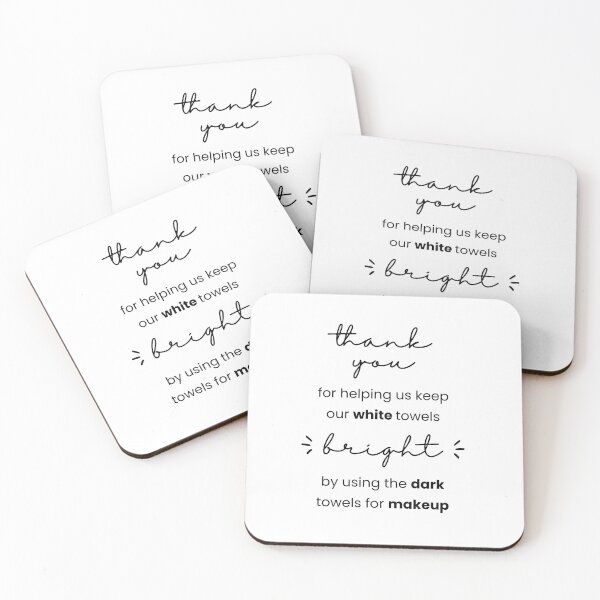 thank
you
for helping us keep
our towels
thank
you
for helping us keep
our white towels
bright
thank
you
for helping us keep
our white towels
bright
by using the
towels for
thank
you
for helping us keep
our white towels
bright
by using the dark
towels for makeup